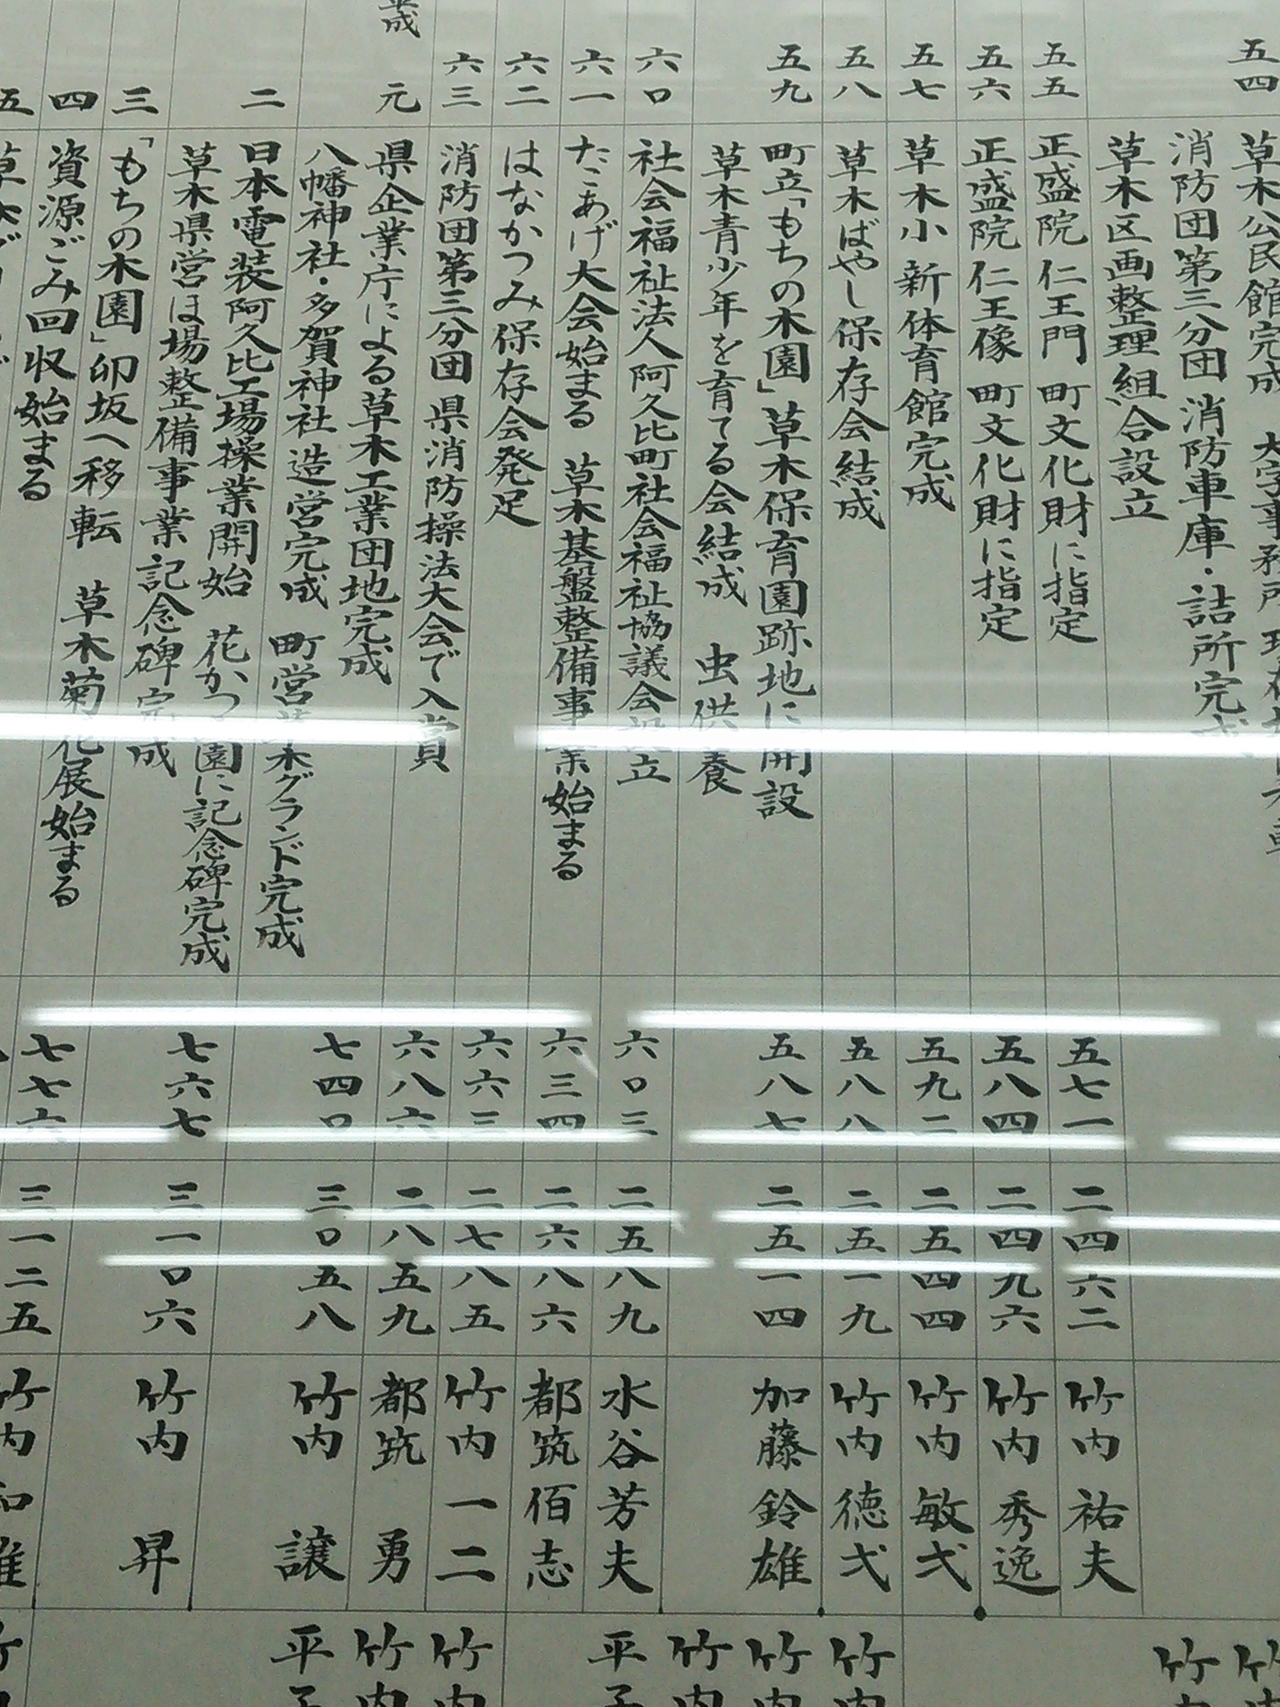 五四
草木公民館完成 大字事務所
消防団第三分団 消防車庫・詰所完成
草木区画整理組合設立
五五
正盛院 仁王門 町文化財に指定
五七一
二四六二
竹内祐夫
五六
正盛院 仁王像 町文化財に指定
五八四
二四九六
竹内秀逸
五七
草木小 新体育館完成
五九二
二五四四
竹内敏弍
五八
草木ばやし保存会結成
五八八
二五一九
竹内徳弍
五九
町立「もちの木園」草木保育園跡地に開設
草木青少年を育てる会結成 虫供養
五八七
二五一四
加藤鈴雄
六〇
社会福祉法人阿久比町社会福祉協議会設立
六〇三
二五八九
水谷芳夫
六一
たこあげ大会始まる 草木基盤整備事業始まる
六三四
二六八六
都筑佰志
六二
はなかつみ保存会発足
六六三
二七八五
竹内一二
六三
消防団第三分団 県消防操法大会で入賞
六八六
二八五九
都筑 勇
平成
元
県企業庁による草木工業団地完成
八幡神社・多賀神社 造営完成 町営草木グランド完成
七四〇
三〇五八
竹内 譲
二
日本電装阿久比工場操業開始 花かつみ園に記念碑完成
草木県営ほ場整備事業記念碑完成
七六七
三一〇六
竹内 昇
三
「もちの木園」卯坂へ移転 草木菊花展始まる
七七六
三一二五
竹内和雄
四
資源ごみ回収始まる
五
竹
竹
竹内
竹内
竹内
平
竹内
竹内
平
竹